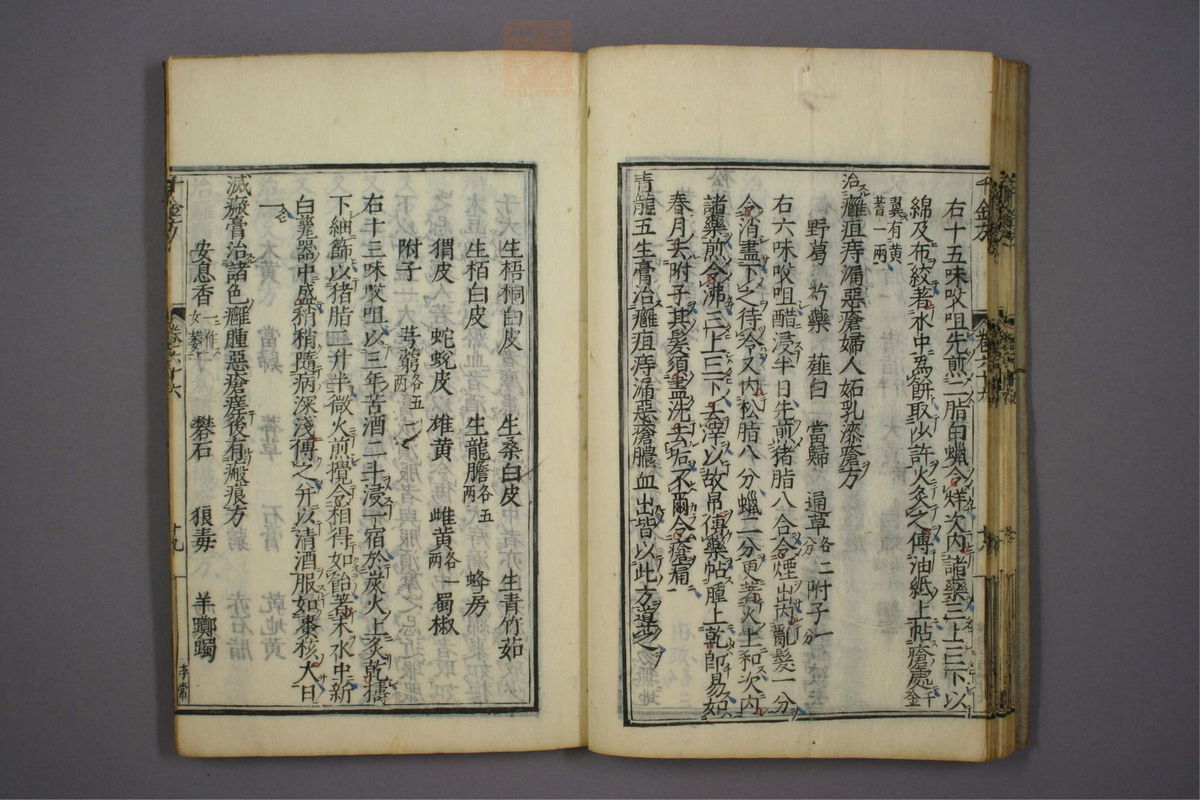 右十五味㕮咀先煎二脂白蠟令烊次內諸藥三上三下以
綿及布絞著水中爲餅取少許火炙之傅油紙上帖瘡處千金
翼有黃
蓍一兩
治癰疽痔漏惡瘡婦人妬乳漆瘡方
野葛 芍藥 薤白 當歸 通草各二分 附子一分
右六味㕮咀醋浸半日先煎猪脂八合令煙出內亂髮一分
令消盡下之待冷又內松脂八分蠟二分更著火上和次內
諸藥煎令沸三上三下去滓以故帛傅藥帖腫上乾卽易如
春月去附子其髮須盡洗去垢不爾令瘡痛
青龍五生膏治癰疽痔漏惡瘡膿血出皆以此方導之
生梧桐白皮 生桑白皮 生青竹茹
生栢白皮 生龍膽各五兩 蜂房
猬皮 蛇蛻皮 雄黃 雌黃各一兩 蜀椒
附子 芎藭各五兩
右十三味㕮咀以三年苦酒二斗浸一宿於炭火上炙乾擣
下細篩以猪脂二升半微火煎攪令相得如飴著不水中新
白甆器中盛稍稍隨病深淺傅之幷以清酒服如棗核大日
一
滅瘢膏治諸色癰腫惡瘡瘥後有瘢痕方
安息香一作女萎 礬石 狼毒 羊躑躅
千金方
卷六十六
千金方
卷六十六
十九
李常